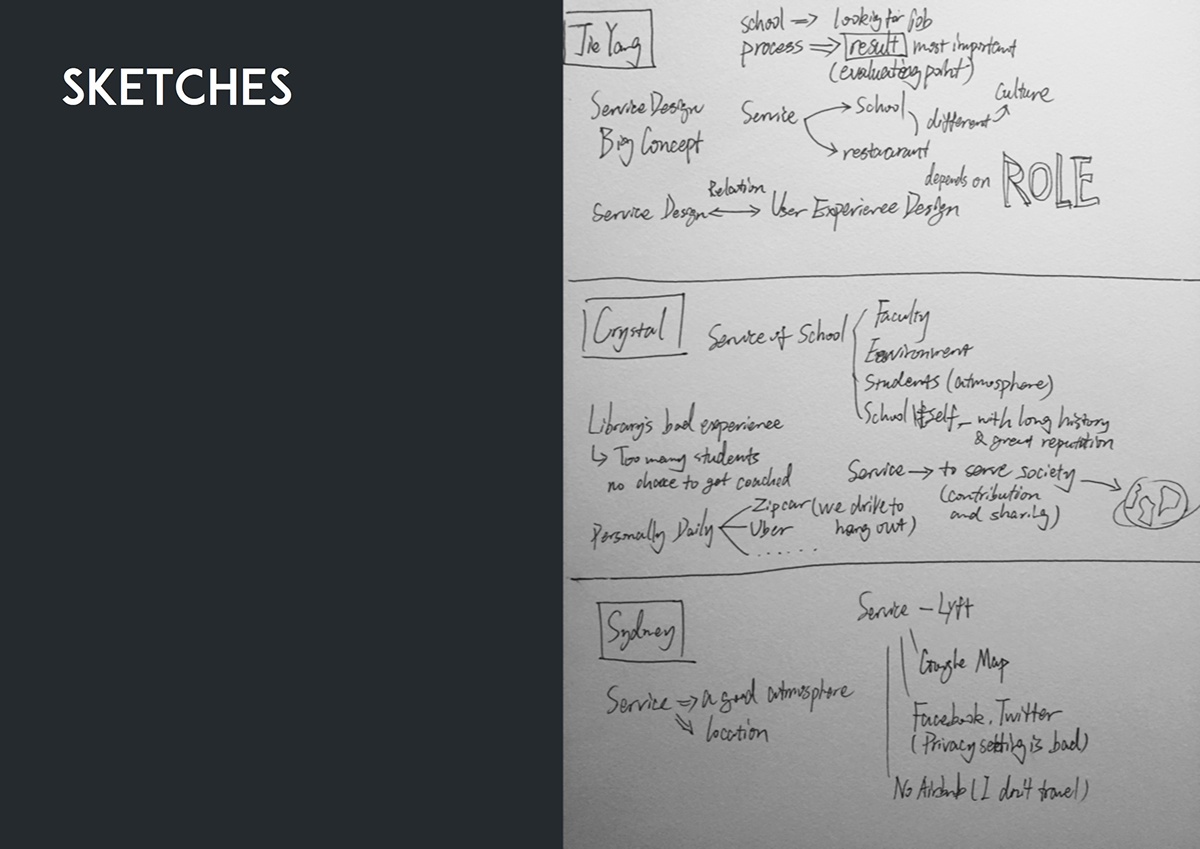 SKETCHES
Jie Yang
school => looking for job
process => result most important
(evaluating point)
Service Design
Big Concept
Service
School
restaurant
different
culture
depends on ROLE
Relation
Service Design <-> User Experience Design
Crystal
Service of School
Faculty
Environment
Students (atmosphere)
School Itself - with long history
& great reputation
Library's bad experience
↳ Too many students
no chance to get coached
Service → to serve society
(contribution
and sharing)
Personally Daily
Zipcar (we drive to
hang out)
Uber
.......
Sydney
Service => a good atmosphere
location
Service - Lyft
Google Map
Facebook, Twitter
(Privacy setting is bad)
No Airbnb (I don't travel)